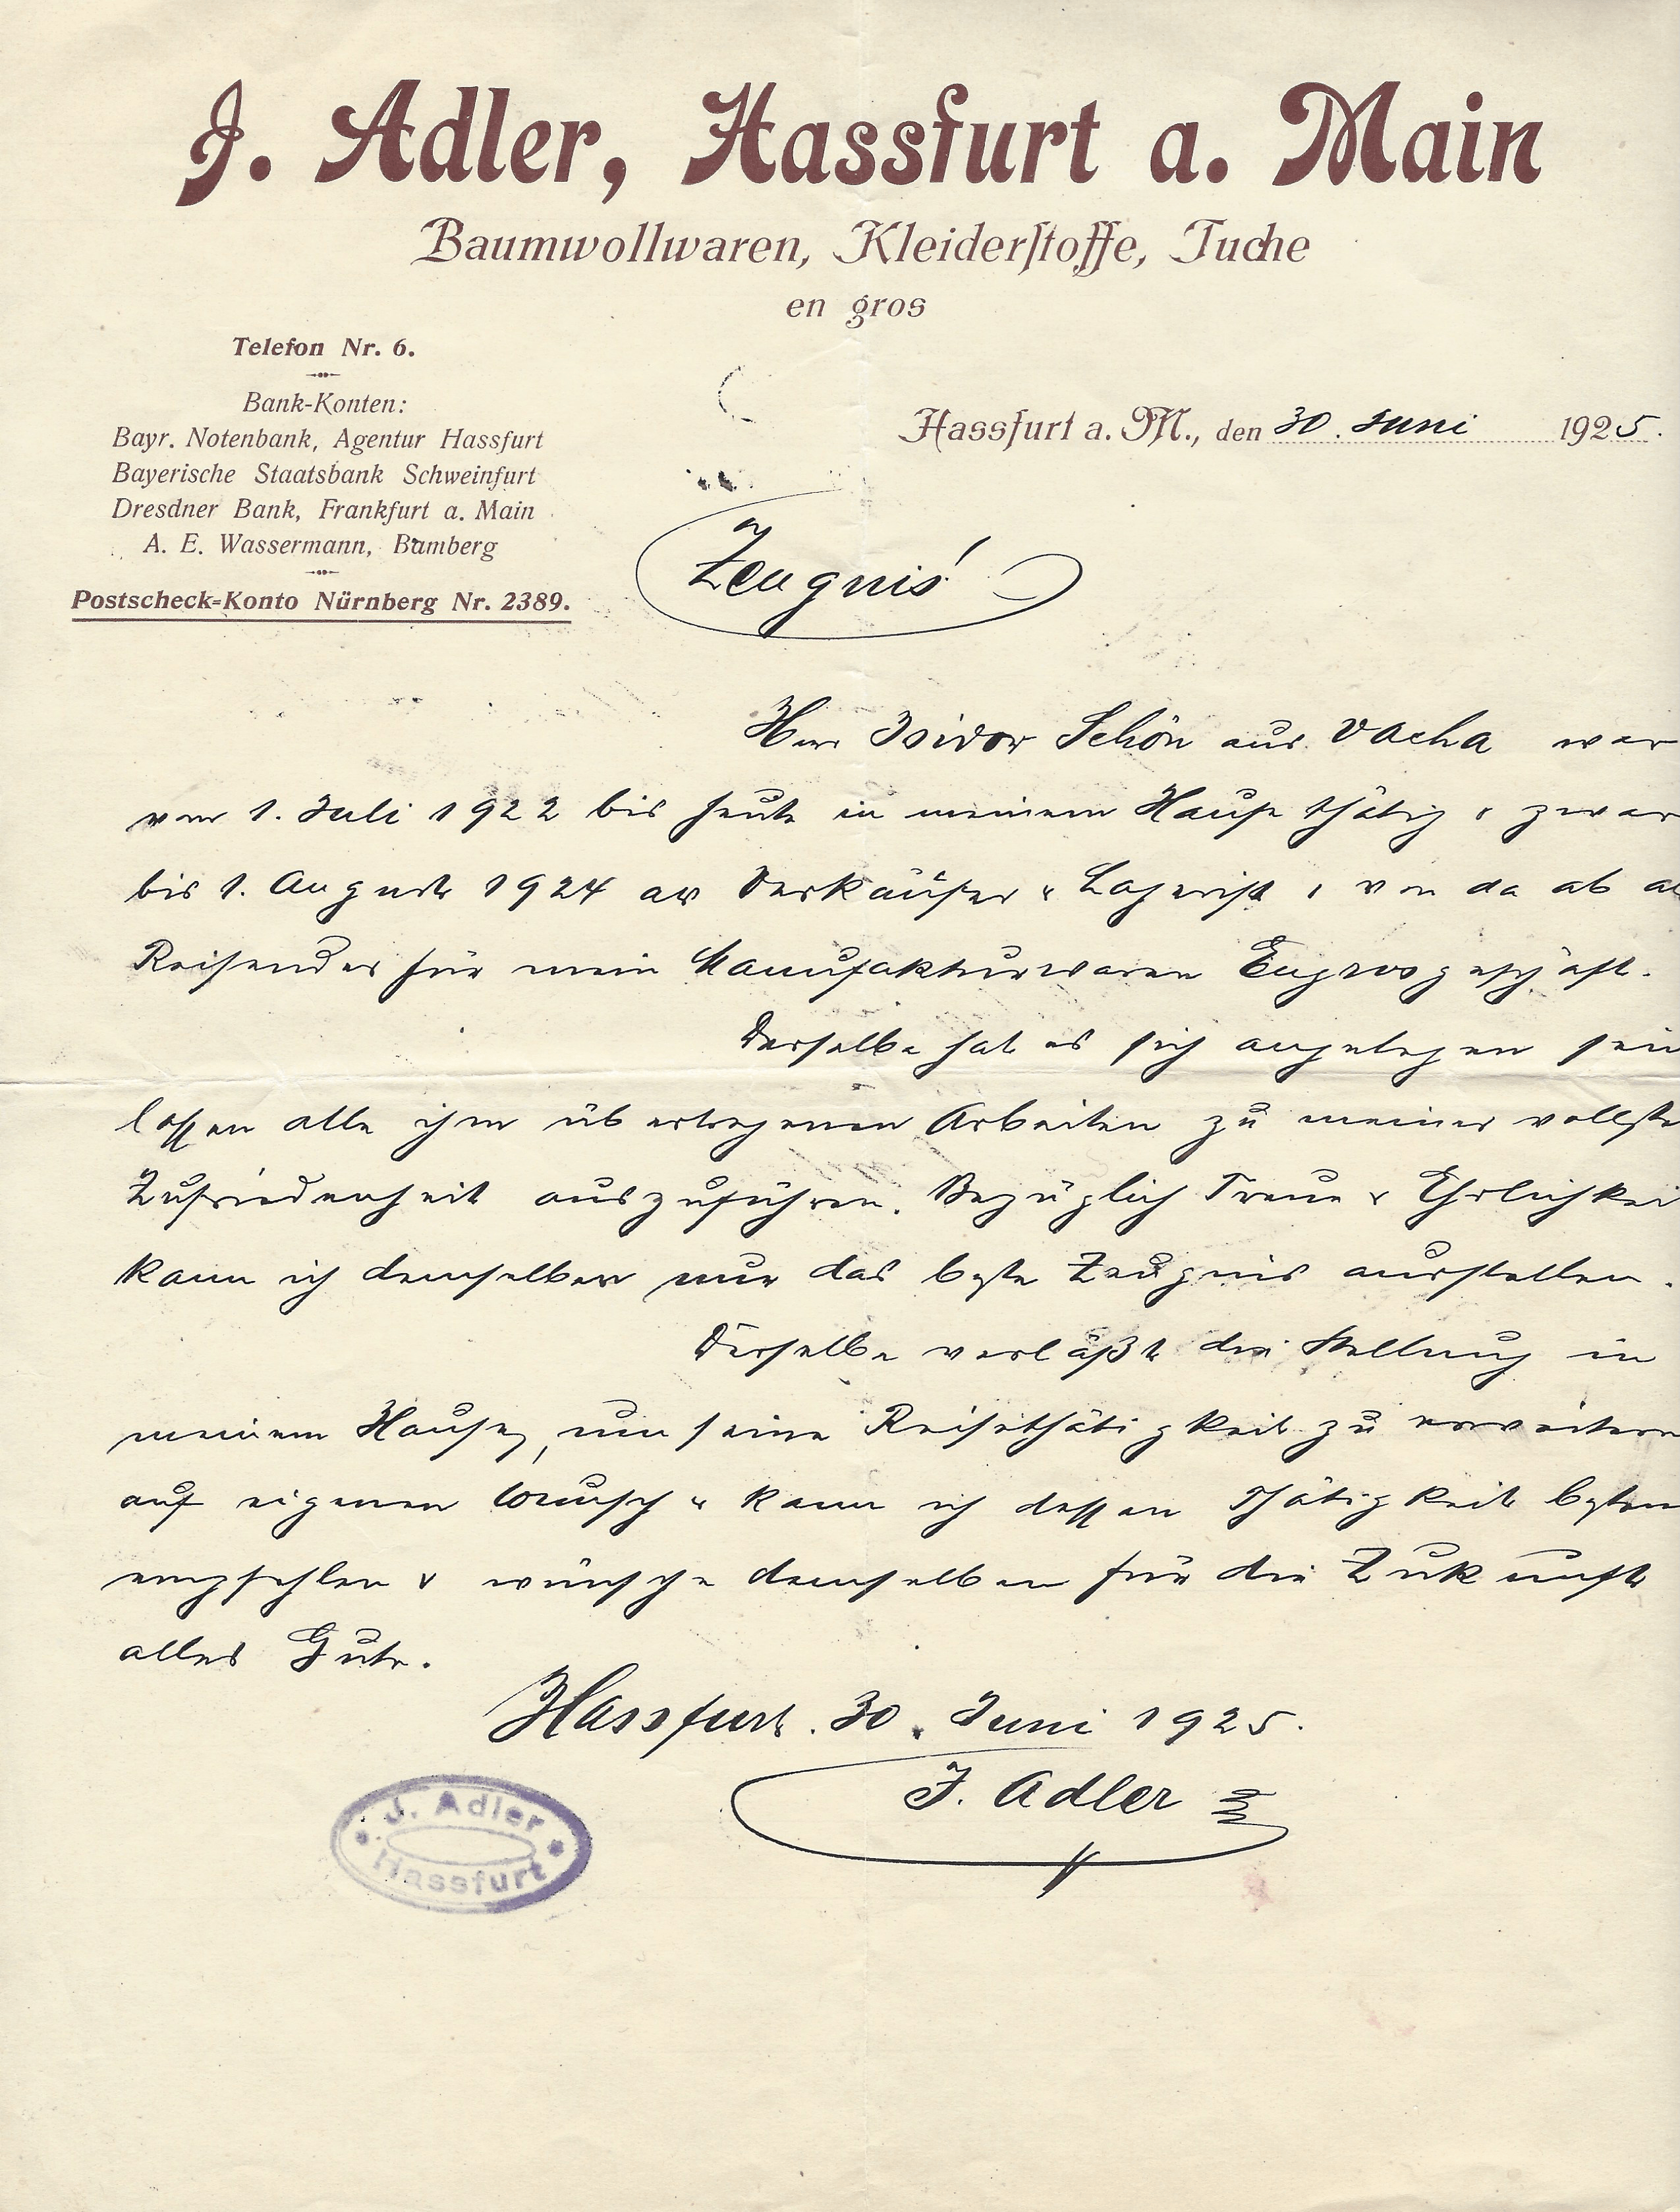 J. Adler, Hassfurt a. Main
Baumwollwaren, Kleiderstoffe, Tuche
en gros
Telefon Nr. 6.
Bank-Konten:
Bayr. Notenbank, Agentur Hassfurt
Bayerische Staatsbank Schweinfurt
Dresdner Bank, Frankfurt a. Main
A. E. Wassermann, Bamberg
Postscheck-Konto Nürnberg Nr. 2389.
Hassfurt a. M., den 30. Juni 1925.
Zeugnis
Herr Isidor Schön aus Vacha war
vom 1. Juli 1922 bis heute in meinem Hause thätig u zwar
bis 1. August 1924 als Verkäufer u Lagerist, von da ab al
Reisender für mein Manufakturwaren Engrosgeschäft.
Derselbe hat es sich angelegen sein
lassen alle ihm übertragenen Arbeiten zu meiner vollste
Zufriedenheit auszuführen. Bezüglich Treue u Ehrlichkei
kann ich demselben nur das beste Zeugnis ausstellen.
Derselbe verläßt die Stellung in
meinem Hause, um seine Reisethätigkeit zu erweitern
auf eigenen Wunsch u kann ich dessen Thätigkeit bestens
empfehlen u wünsche demselben für die Zukunft
alles Gute.
Hassfurt. 30. Juni 1925.
J. Adler
J. Adler
Hassfurt